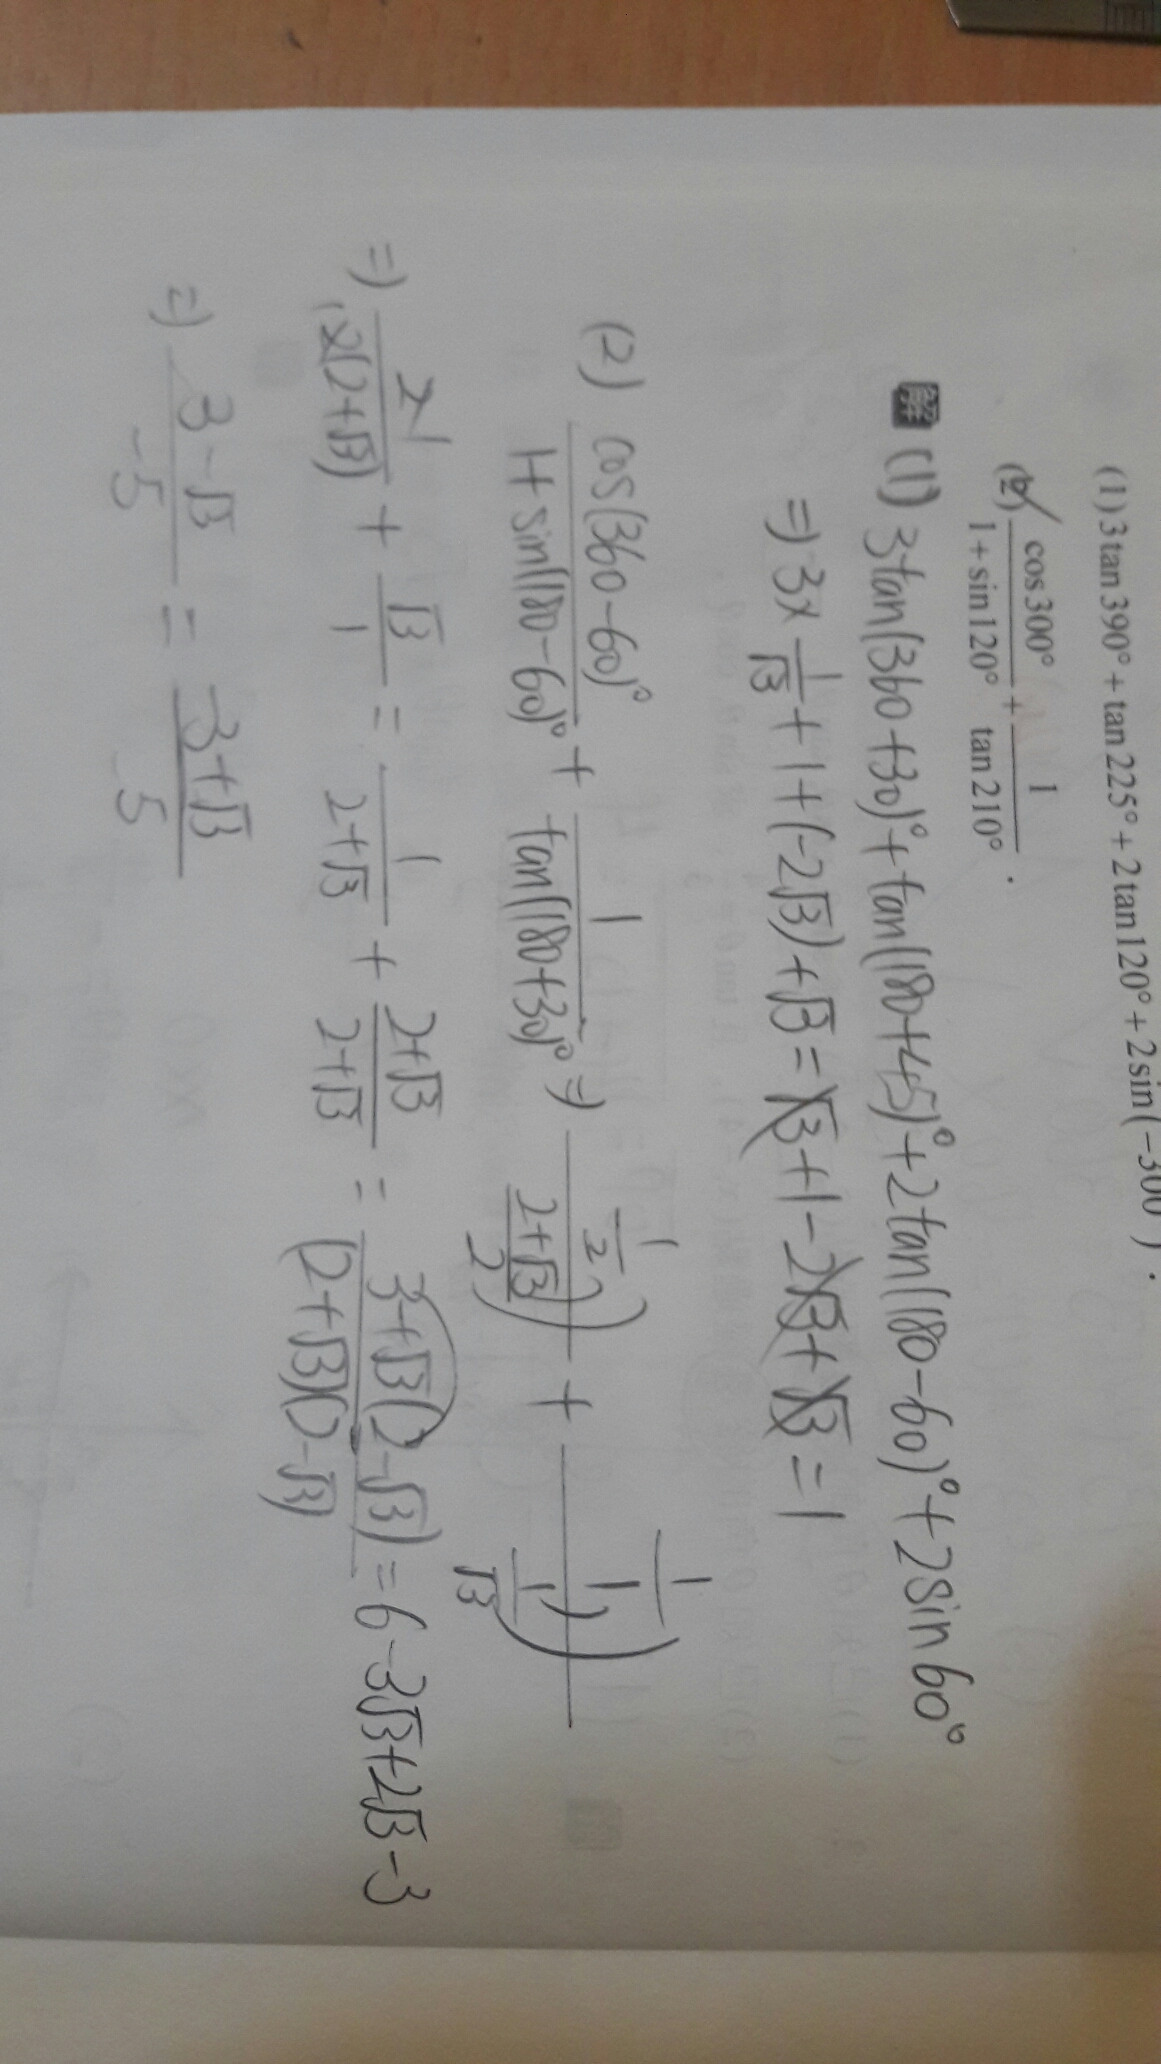 (1) 3 tan 390° + tan 225° + 2 tan 120° + 2 sin(−300°).
(2) cos 300° / (1 + sin 120°) + 1 / tan 210°.
解 (1) 3tan(360+30)° + tan(180+45)° + 2tan(180−60)° + 2sin60°
⇒ 3× 1/√3 + 1 + (−2√3) + √3 = √3 + 1 − 2√3 + √3 = 1
(2) cos(360−60)° / 1+sin(180−60)° + 1 / tan(180+30)° ⇒ (1/2) / ((2+√3)/2) + (1/1) / (1/√3)
⇒ 2 1 / 1 2(2+√3) + √3/1 = 1/(2+√3) + 2+√3/2+√3 = 3+√3(2−√3) / (2+√3)(2−√3) = 6−3√3+2√3−3
⇒ 3−√3 / −5 = −3+√3 / 5